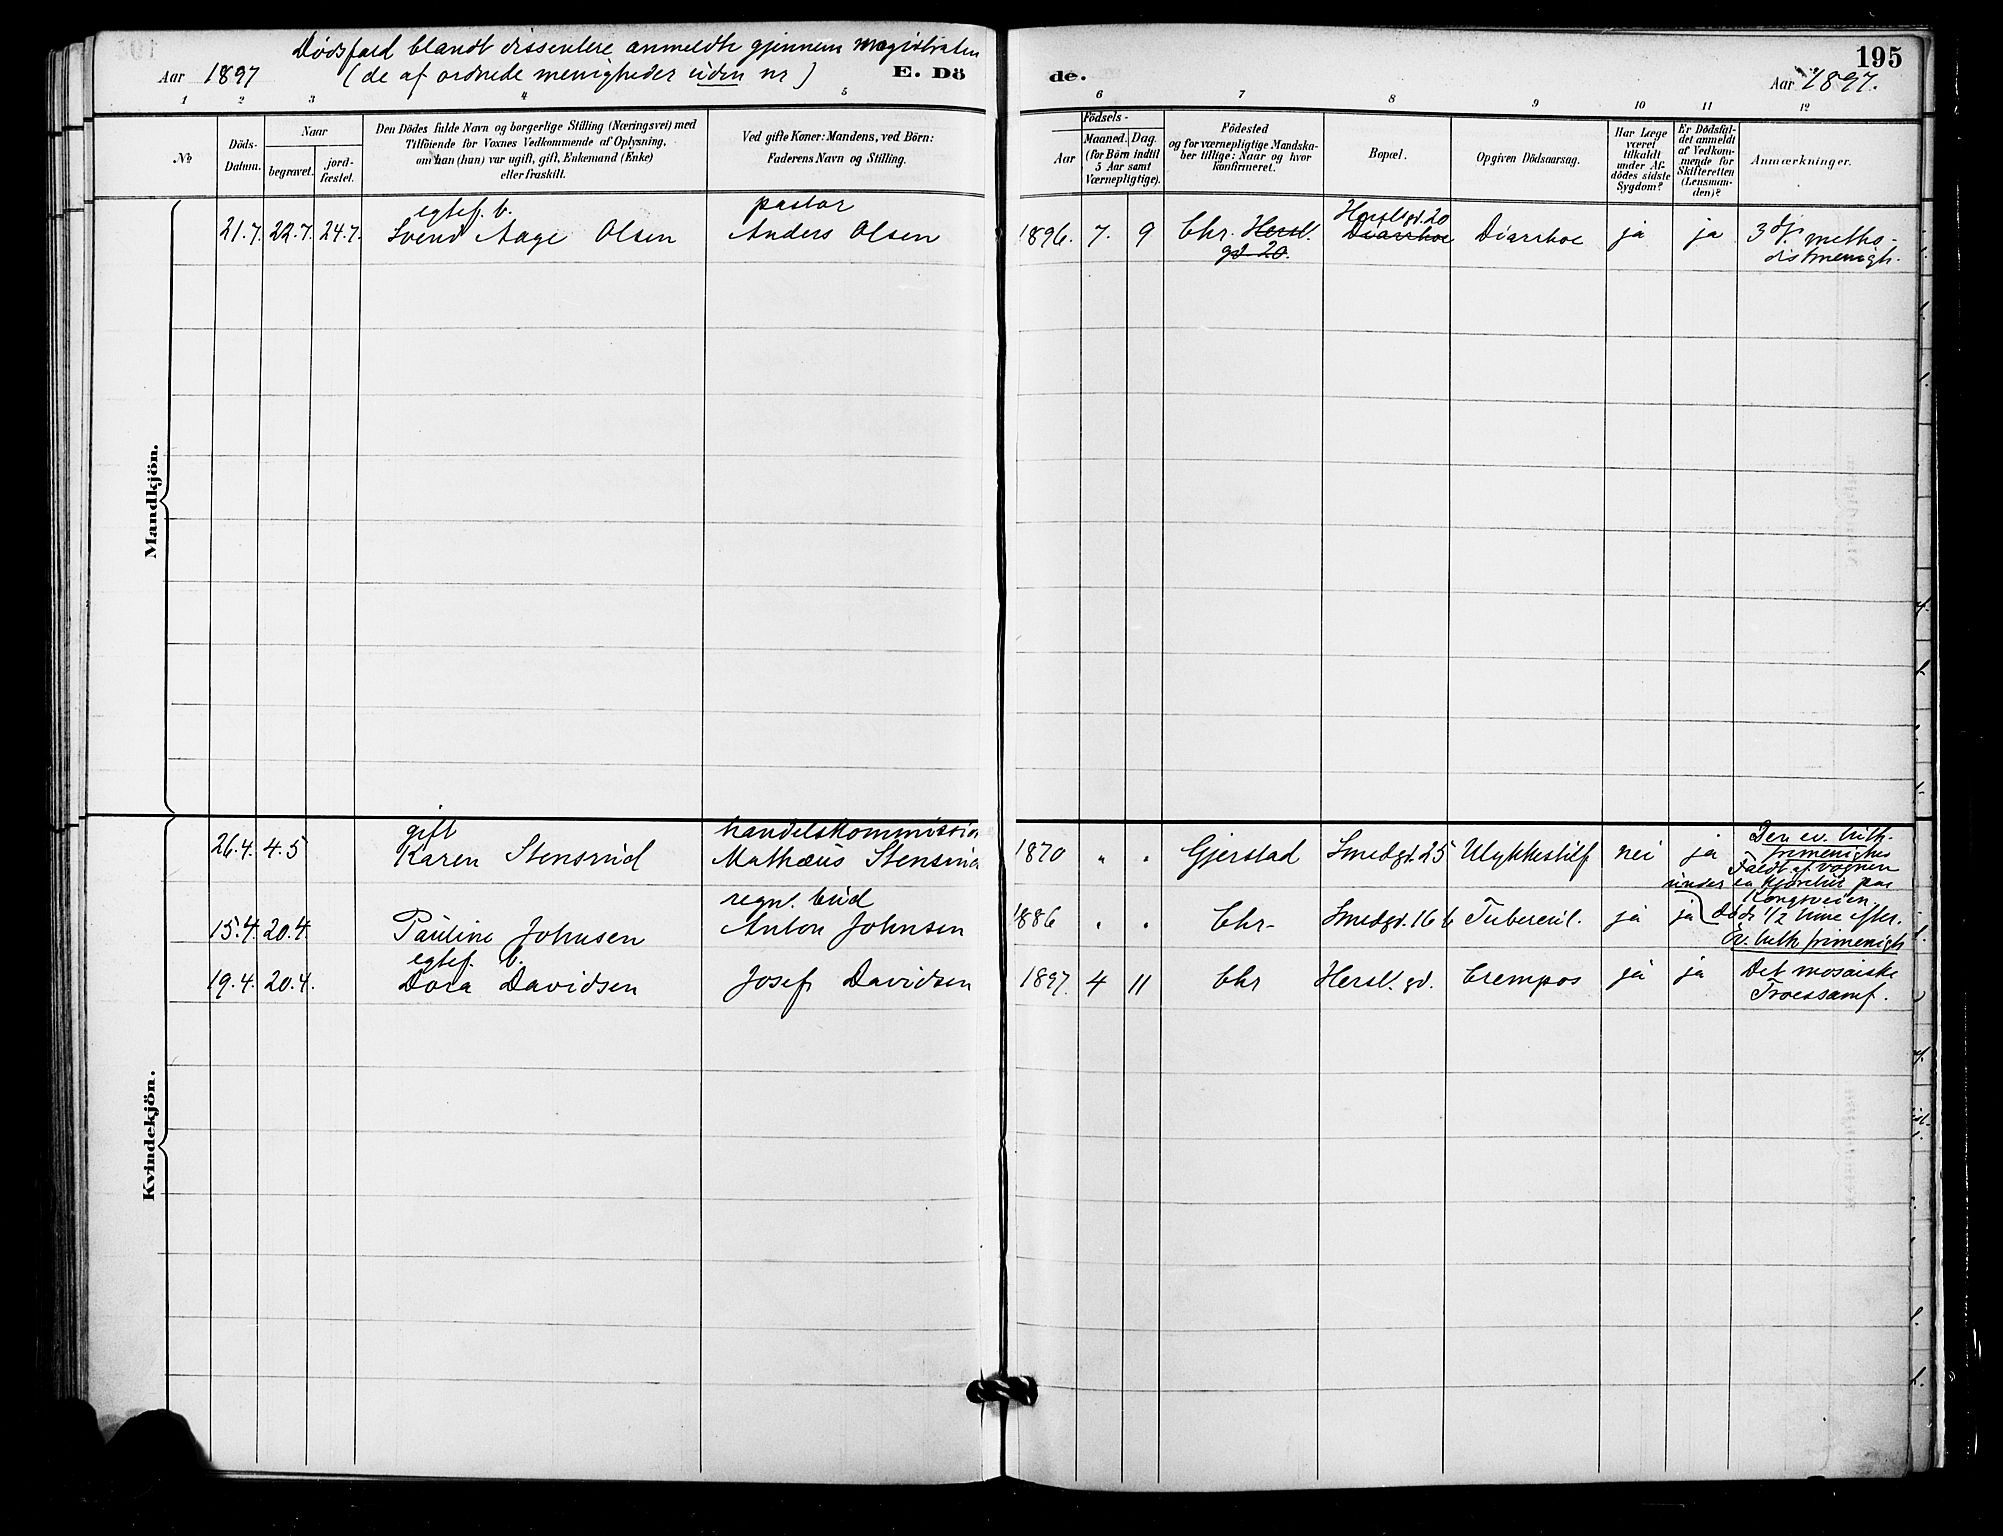 Dødsfald blandt dissentere anmeldte gjennem magistraten
Aar 1897 (de af ordnede menigheder uden nr) E. Dö
de.
195
Aar 1897.
1 2 3 4 5
6 7 8 9 10 11 12
No
Döds-Datum.
Naar
begravet.
jord-fæstet.
Den Dödes fulde Navn og borgerlige Stilling (Næringsvei) med
Tilföiende for Voxnes Vedkommende af Oplysning,
om han (hun) var ugift, gift, Enkemand (Enke)
eller fraskilt.
Ved gifte Koner: Mandens, ved Börn:
Faderens Navn og Stilling.
Födsels-
Aar
Maaned. Dag.
(for Börn indtil
5 Aar samt
Værnepligtige).
Födested
og for værnepligtige Mandska-
ber tillige: Naar og hvor
konfirmeret.
Bopæl.
Opgiven Dödsaarsag.
Har Læge
været
tilkaldt
under Af-
dödes sidste
Sygdom?
Er Dödsfal-
det anmeldt
af Vedkom-
mende for
Skifteretten
(Lensman-
den)?
Anmærkninger.
Mandkjön.
egtef. b. pastor Herslsgd. 20
21.7. 22.7. 24.7. Svend Aage Olsen Anders Olsen 1896. 7. 9 Chr. Hersl. Diarrhoe Diarrhoe ja ja 3dj. metho-
gd 20. distmenigh.
Kvindekjön.
gift handelskommissio Den ev. luth.
26.4. 4.5 Karen Stensrud Mathæus Stensrud 1870 " " Gjerstad Smedgd. 25 Ulykkestilf nei ja frimenighed
Faldt af vognen
under en kjøretur paa
regn. bud Kongsveien.
15.4. 20.4. Pauline Johnsen Anton Johnsen 1886 " " Chr. Smedgd. 16 b Tubercul. ja ja Døde 1/2 time efter.
Ev. luth frimenigh
egtef. b.
19.4. 20.4. Dora Davidsen Josef Davidsen 1897. 4 11 Chr Hersl. gd. Crempos ja ja Det mosaiske
Troessamf.